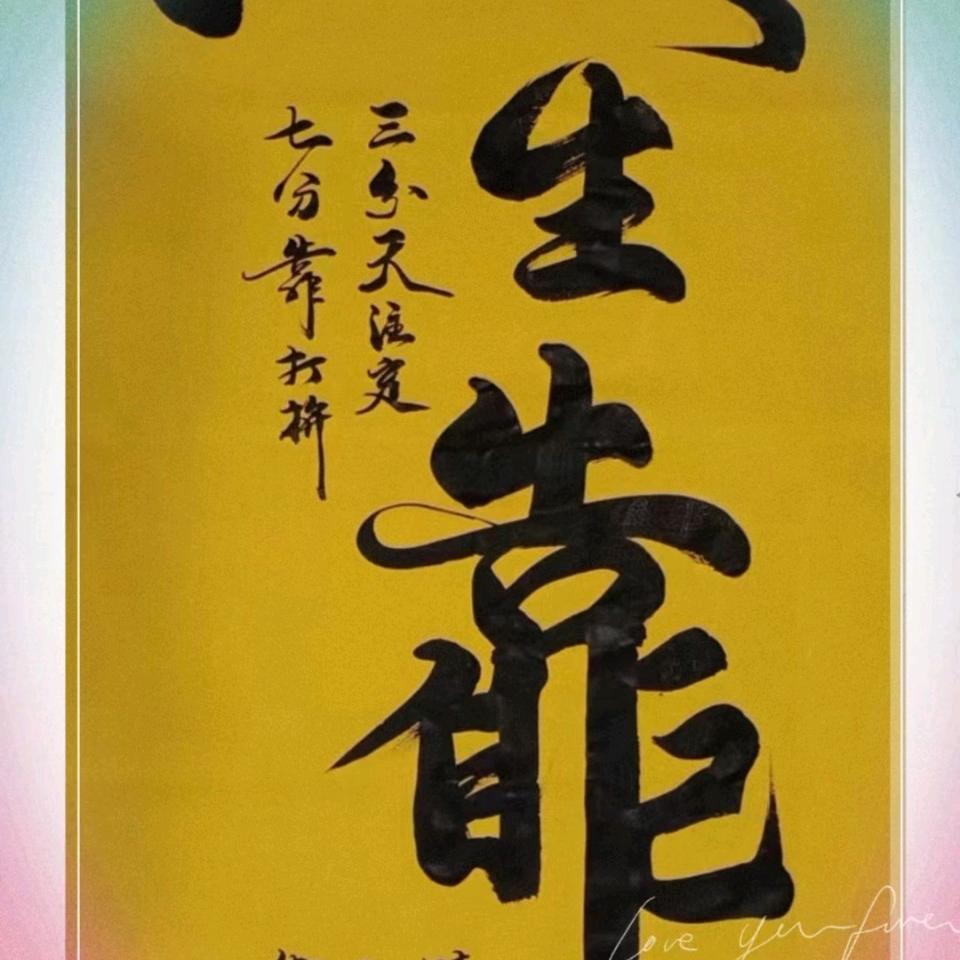 生靠自己
三分天注定
七分靠打拼
love you